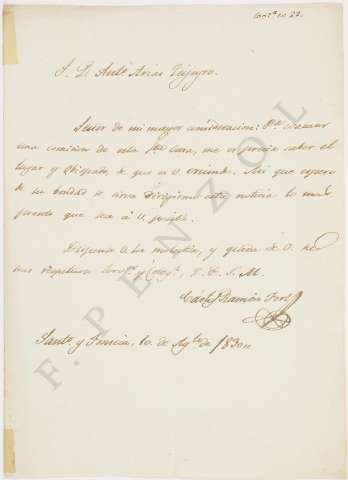 S. D. Antº Arias Teijeyro.
Señor de mi mayor consideracion: Pª evacuar
una comision de esta Stª Casa, me es preciso saber el
lugar y Obispado, de que es V. oriundo. Asi que espero
de su bondad se sirva dirigirme esta noticia lo mas
pronto que sea á V. posible.
Dispense V. la molestia, y quede de V. 
mas respetuoso
Cárlos Ramón Fort
Santº y 10. de Agto de 1830
F. PENZOL